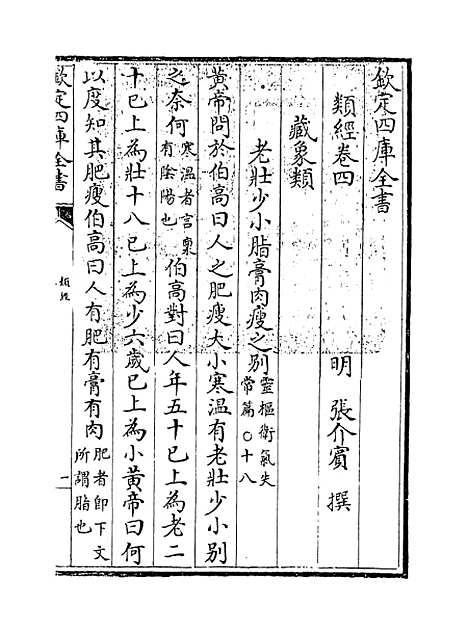 欽定四庫全書
類經卷四
明 張介賓 撰
藏象類
老壯少小脂膏肉瘦之别靈樞衛氣失
常篇○十八
黄帝問於伯高曰人之肥瘦大小寒温有老壯少小别
之奈何寒温者言稟
有陰陽也伯高對曰人年五十已上為老二
十已上為壯十八已上為少六歲已上為小黄帝曰何
以度知其肥瘦伯高曰人有肥有膏有肉肥者即下文
所謂脂也
欽定四庫全書
類經
一